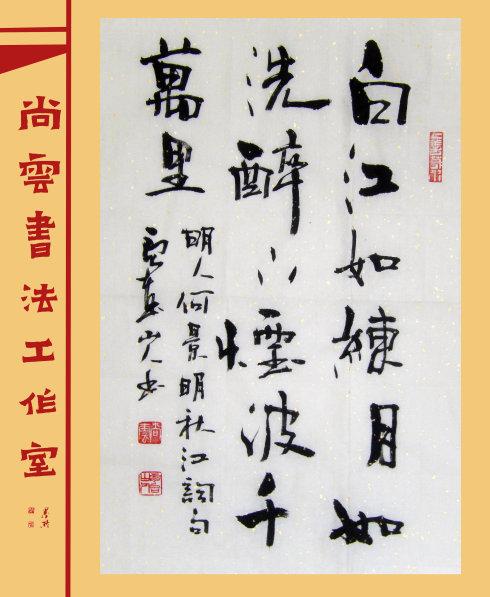 白江如練月如
洗醉下煙波千
萬里
明人何景明秋江詞句
山人書
尚雲書法工作室